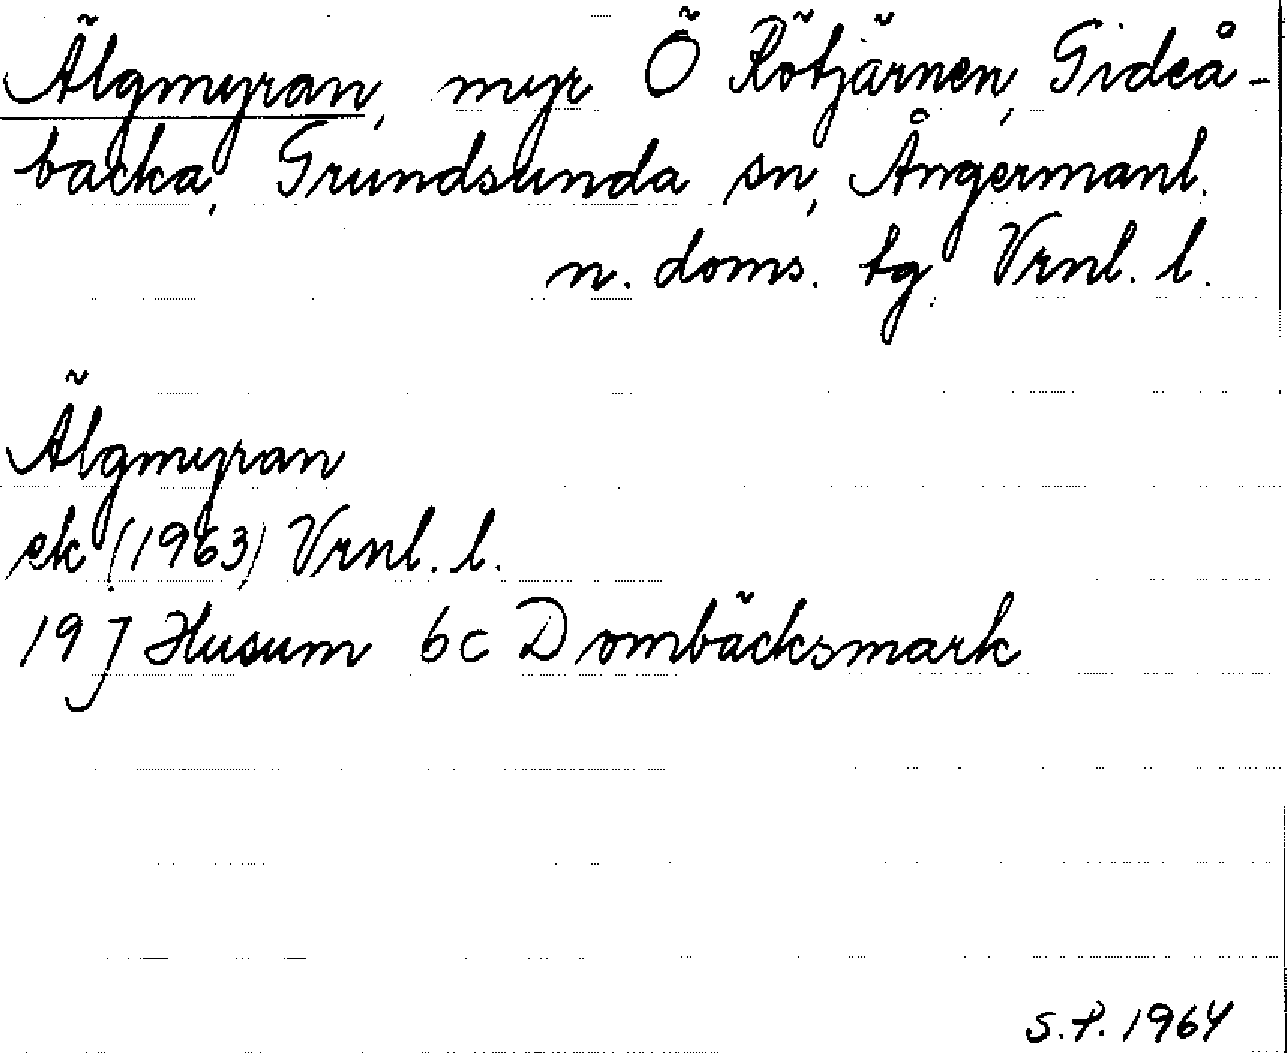 Älgmyran, myr Ö Rötjärnen, Gideå-
backa, Grundsunda sn, Ångermanl.
n. doms. tg Vrnl. l.
Älgmyran
ek (1963) Vrnl. l.
19 J Husum 6c Dombäcksmark
S.P. 1964